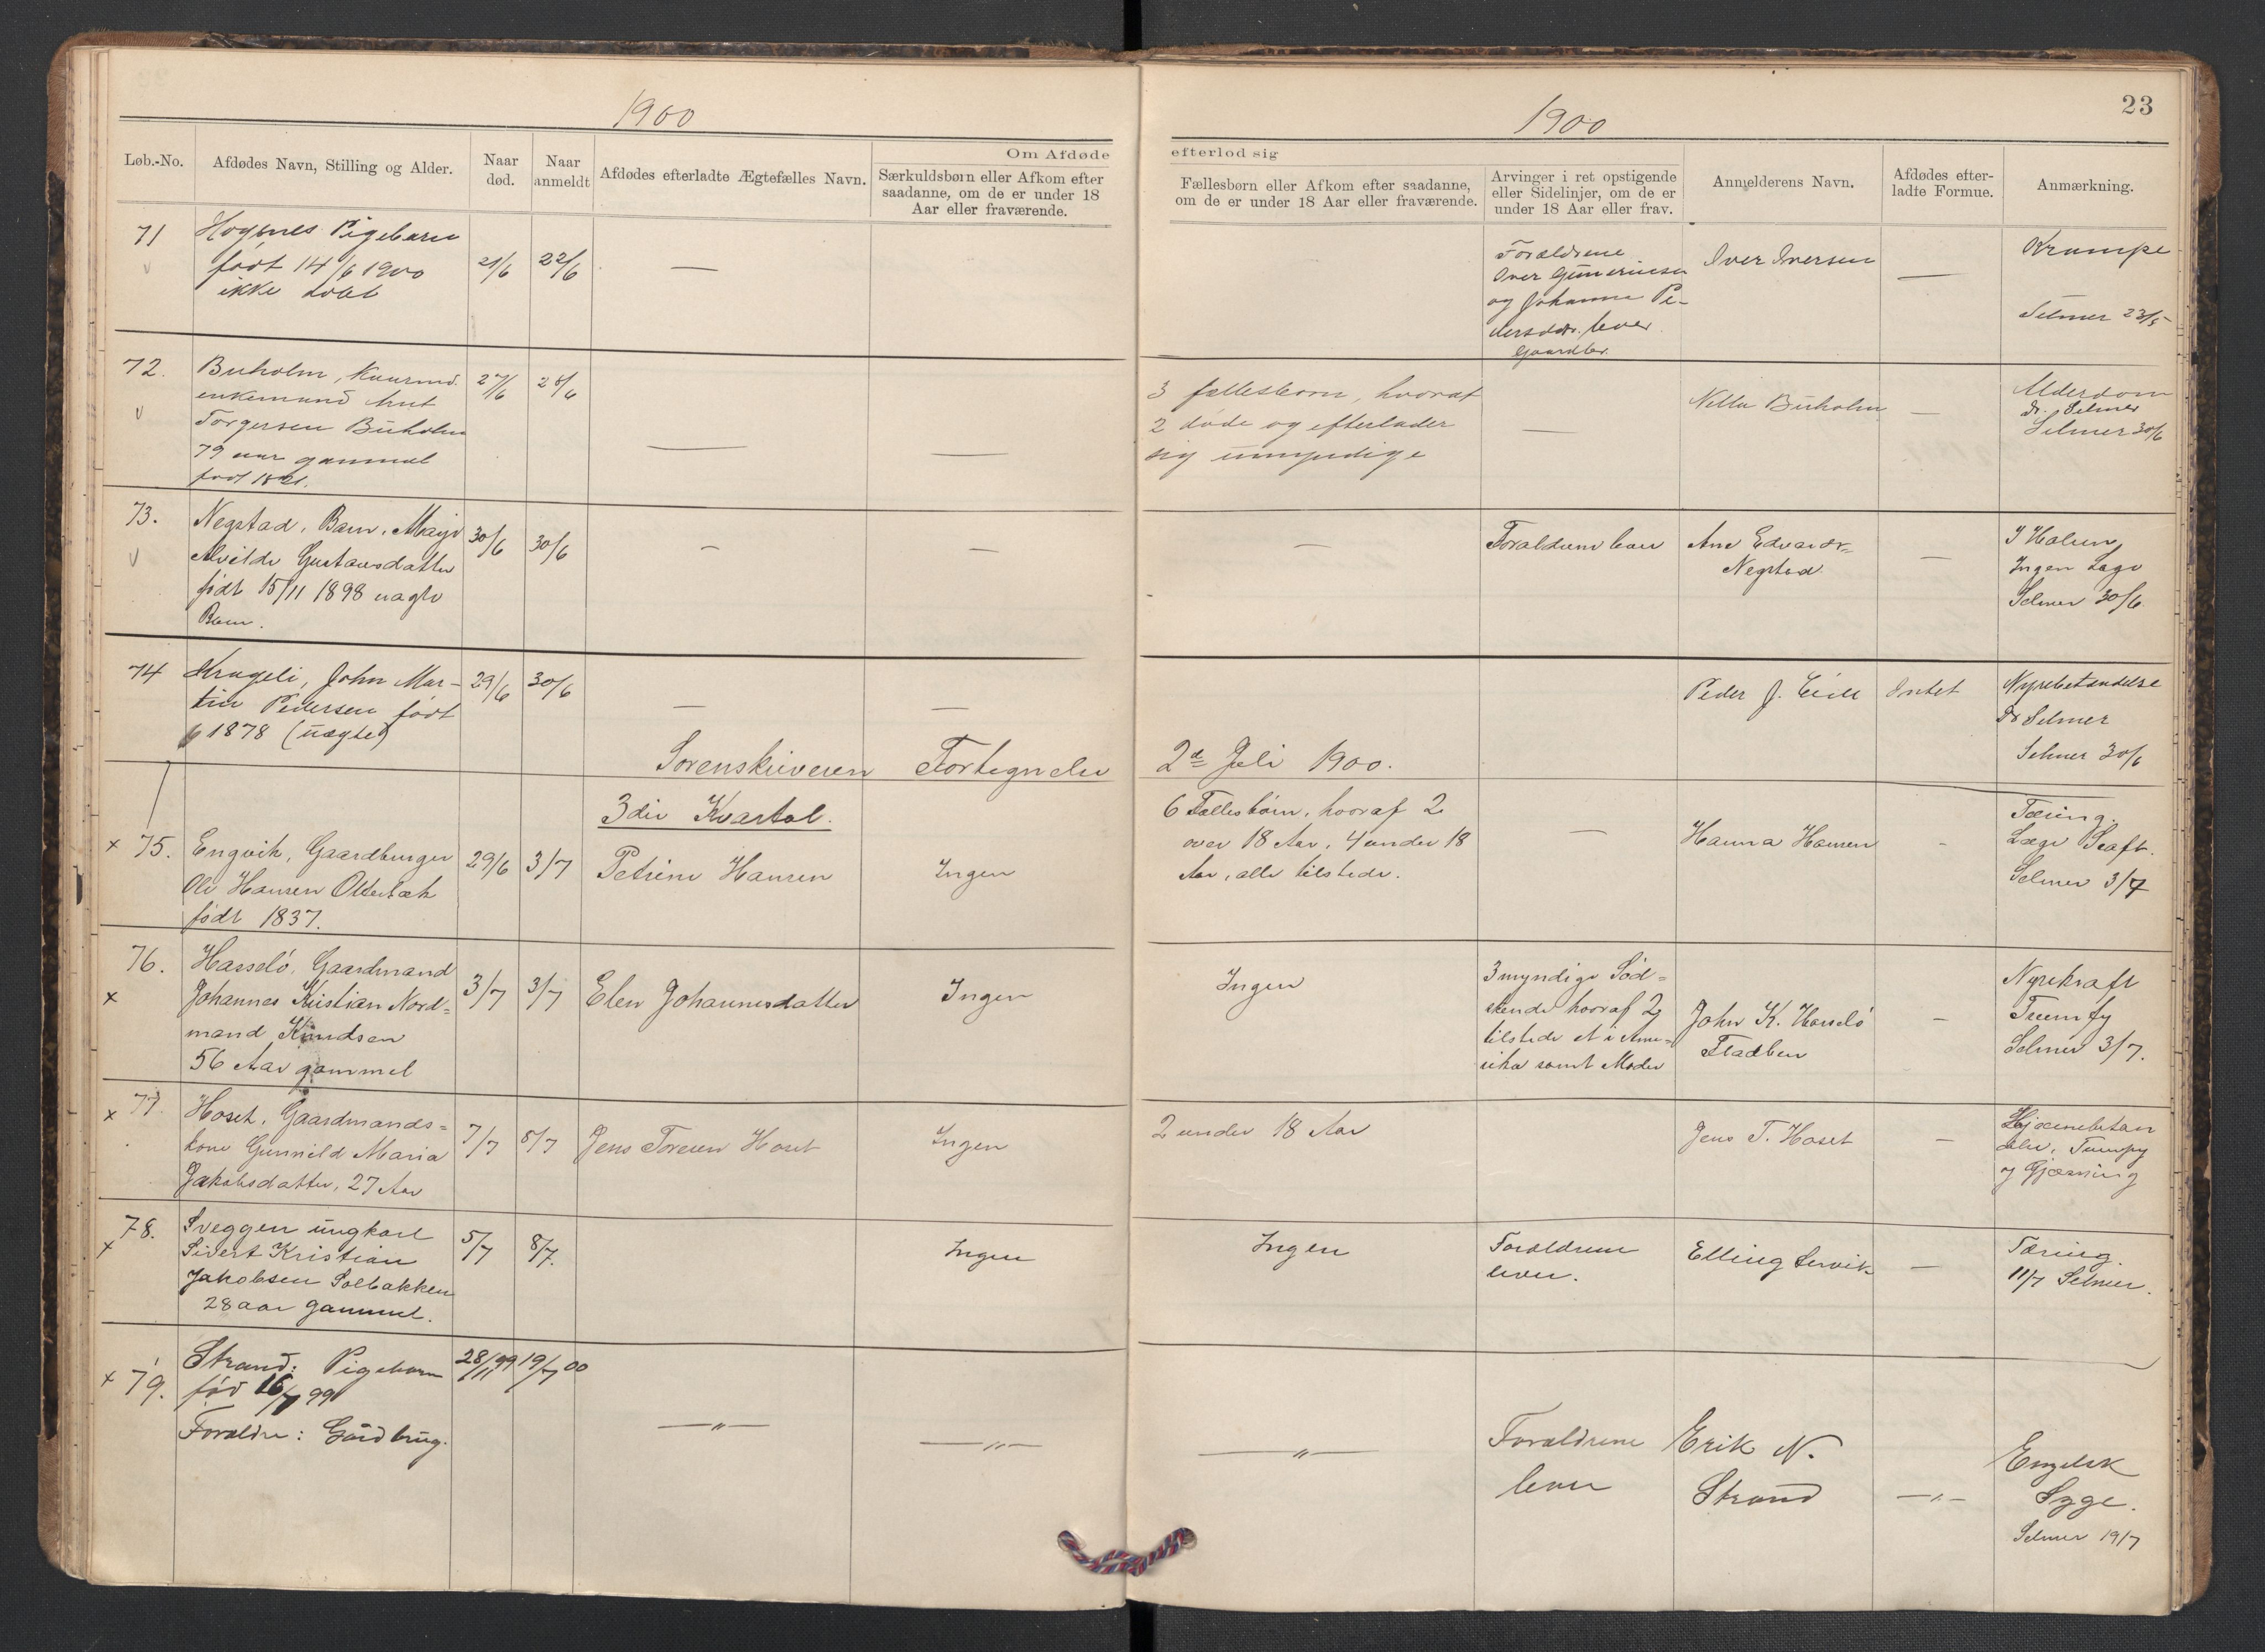 1900
Løb.-No.
Afdødes Navn, Stilling og Alder.
Naar død.
Naar anmeldt
Afdødes efterladte Ægtefælles Navn.
Om Afdøde
Særkuldsbørn eller Afkom efter
saadanne, om de er under 18
Aar eller fraværende.
1900
23
efterlod sig
Fællesbørn eller Afkom efter saadanne,
om de er under 18 Aar eller fraværende.
Arvinger i ret opstigende
eller Sidelinjer, om de er
under 18 Aar eller frav.
Anmelderens Navn.
Afdødes efter-
ladte Formue.
Anmærkning.
71
Pigebarn
født 14/6 1900
ikke døbt
21/6
22/6
—
Forældrene
Iver
og Johanna Pe-
dersdtr. lever
Gaardbr.
Iver Iversen
—
Krampe
Selmer
72.
Buholm,
enkemand
Torgersen Buholm
79 aar gammel
født 1821.
27/6
28/6
—
—
3 fællesbørn, hvoraf
2 døde og efterlader
sig umyndige
—
Buholm
—
Alderdom
Dr. Selmer
Selmer 30/6
73.
Negstad, Barn,
Alvilde Gustavsdatter
født 15/11 1898 uægte
Barn.
30/6
30/6
—
—
—
Forældrene lever
Ane Edvards-
Negstad
—
Ingen Læge
Selmer 30/6
74
John Mar-
tin Pedersen født
1878 (uægte)
29/6
30/6
—
—
Peder J. Eide
Intet
Nyrebetændelse
Dr Selmer
Selmer 30/6
Sorenskriveren Fortegnelse
2de Juli 1900.
3die Kvartal.
x 75.
Engvik, Gaardbruger
Ole Hansen
født 1837.
29/6
3/7
Petrine Hansen
Ingen
6 Fællesbørn, hvoraf 2
over 18 Aar, 4 under 18
Aar, alle tilstede.
—
Hanna Hansen
-
Tæring.
Læge
Selmer 3/7
76.
x
Hasselø, Gaardmand
Johannes Kristian Nord-
mand Knudsen
56 Aar gammel
3/7
3/7
Elen Johannesdatter
Ingen
Ingen
3 myndige Sød-
skende hvoraf 2
tilstede et i Ame-
rika samt Moder
John K. Hasselø
—
Nyrekræft
Selmer 3/7.
x 77.
Hoset, Gaardmands-
kone Gunnild Maria
Jakobsdatter, 27 Aar
7/7
8/7
Jens Toresen Hoset
Ingen
2 under 18 Aar
Jens T. Hoset
—
Hjærnebetæn
x 78.
Sveggen ungkarl
Sivert Kristian
Jakobsen Solbakken
28 aar gammel.
5/7
8/7.
Ingen
Ingen
Forældrene
lever.
Elling
—
Tæring.
11/7 Selmer.
x 79.
Strand: Pigebarn
fød 16/7 99
Forældre: Gårdbrug.
28/11 99
19/7 00
—„—
—„—
—„—
Forældrene
lever
Erik N.
Strand
—„—
Engelsk
Syge.
Selmer 19/7